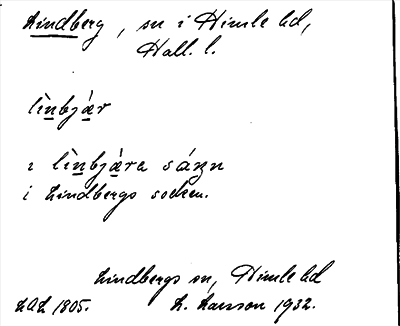 Lindberg, sn i Himle hd,
Hall. l.
lìnbjær
i lìnbjæra sázn
i Lindbergs socken.
Lindbergs sn, Himle hd
LAL 1805. L. Larsson 1932.